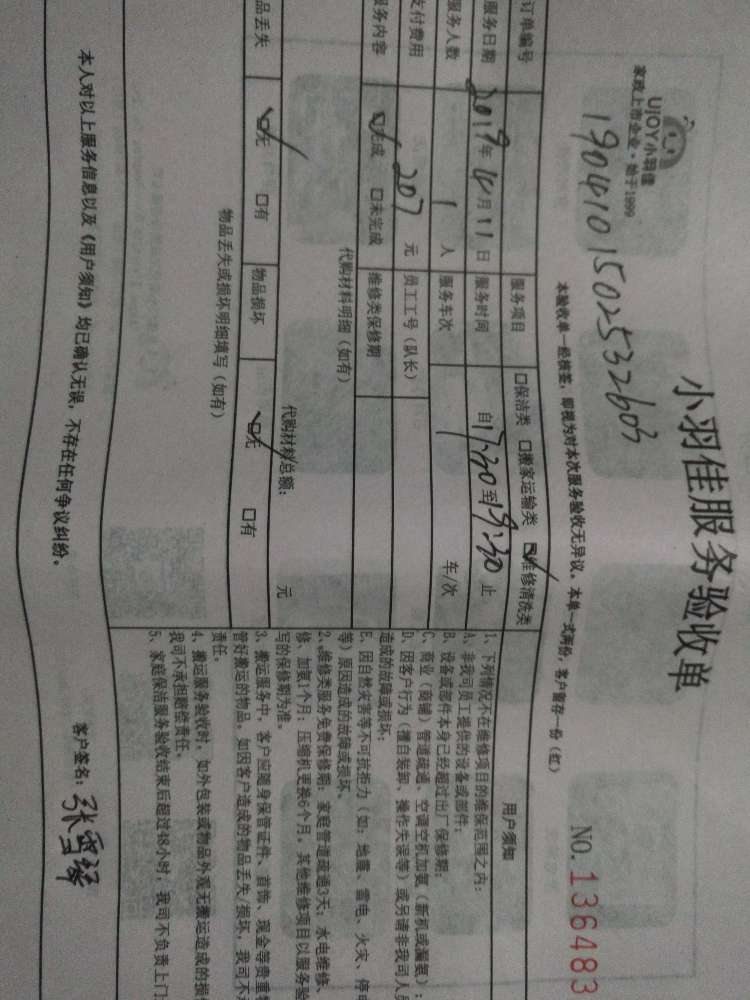 小羽佳服务验收单
UJOY小羽佳
家政上市企业·始于1999
本验收单一经核签，即视为对本次服务验收无异议。本单一式两份，客户留存一份（红）
NO.136483
订单编号 1904101502532603
服务项目 □保洁类 □搬家运输类 ☑维修清洗类
服务日期 2019年4月11日 服务时间 自17:30至19:30止
服务人数 1人 服务车次 车/次
支付费用 207元 员工工号（队长）
服务内容 ☑完成 □未完成 维修类保修期
代购材料明细（如有）
代购材料总额： 元
品丢失 ☑无 □有 物品损坏 ☑无 □有
物品丢失或损坏明细填写（如有）
用户须知
1、下列情况不在维修项目的维保范围之内：
A、非我司员工提供的设备或部件；
B、设备或部件本身已经超过出厂保修期；
C、商业（商铺）管道疏通、空调空机加氨（新机或漏氨）；
D、因客户行为（擅自装卸、操作失误等）或另请非我司人员
造成的故障或损坏；
E、因自然灾害等不可抗拒力（如：地震、雷电、火灾、停电
等）原因造成的故障或损坏、
2、维修类服务免费保修期：家庭管道疏通3天；水电维修、
修、加氨1个月；压缩机更换6个月，其他维修项目以服务验
写的保修期为准。
3、搬运服务中，客户应随身保管证件、首饰、现金等贵重物
管好搬运的物品，如因客户造成的物品丢失/损坏，我司不承
责任。
4、搬运服务验收时，如外包装或物品外观无搬运造成的损
我司不承担赔偿责任。
5、家庭保洁服务验收结束后超过48小时，我司不负责上门
本人对以上服务信息以及《用户须知》均已确认无误，不存在任何争议纠纷。
客户签名：张雪